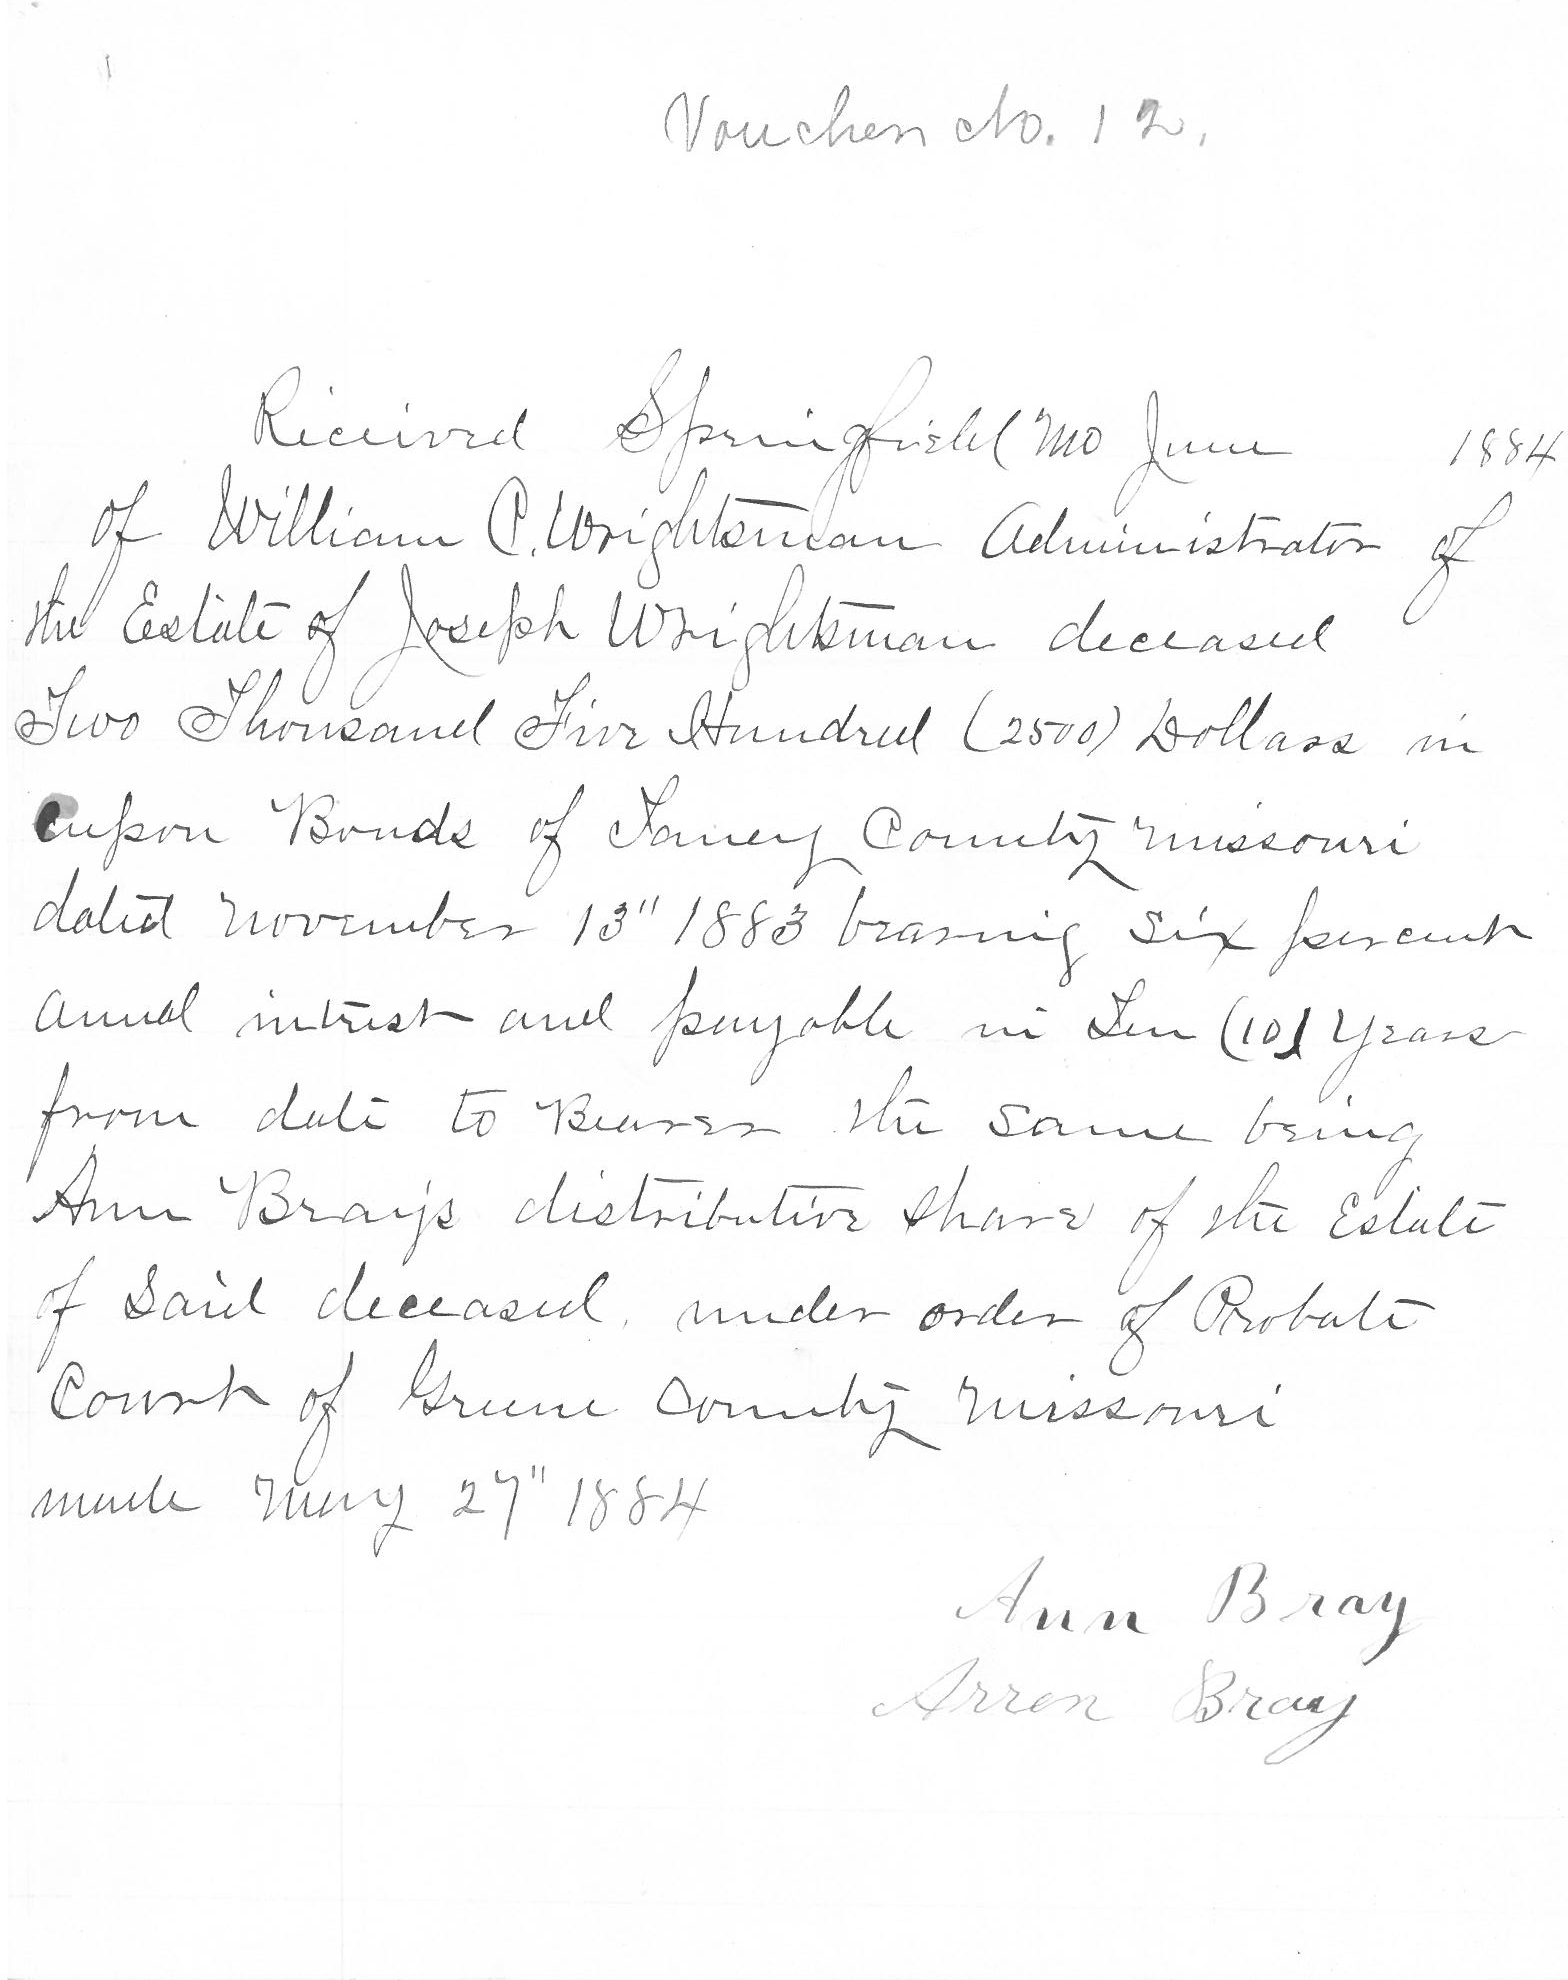 Voucher No. 12.
Received Springfield Mo June 1884
of William C. Wrightsman Administrator of
the Estate of Joseph Wrightsman deceased
Two Thousand Five Hundred (2500) Dollars in
cupon Bonds of Taney County Missouri
dated November 13" 1883 bearing six percent
annual intrest and payable in Ten (10) years
from date to Bearer the same being
Ann Bray's distributive share of the Estate
of said deceased. under order of Probate
Court of Greene County Missouri
made May 27" 1884
Ann Bray
Arren Bray